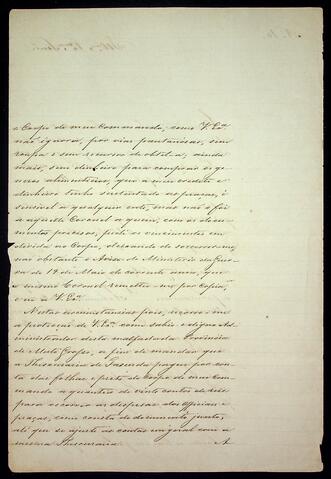 o Corpo de meu Commando, como V. Exª
não ignora, por vias pantanosas, sem
roupa e sem recursos de obtel-a, ainda
mais, sem dinheiro para comprar os ge-
neros alimenticios, que a meu credito e
dinheiro tenho sustentado as praças, é
sensivel a qualquer ente, mas não o foi
a aquelle Coronel a quem, com os docu-
mentos precisos, pedi os vencimentos em
divida ao Corpo, deixando de soccorrer-me,
não obstante o Aviso do Ministerio da Guer-
ra de 19 de Maio do corrente anno, que
o mesmo Coronel remetteu-me por Copia,
e eu a V. Exª
Nestas circumstancias pois, recorro-me
a protecção de V. Exª como sabio e digno Ad-
ministrador desta malfadada Provincia
de Mato Grosso, a fim de mandar que
a Thesouraria de Fazenda pague por con-
ta das folhas e prets do Corpo de meu Com-
mando a quantia de vinte contos de réis
para occorrer as despesas dos Officiaes e
praças, como consta do documento junto,
até que se ajuste as contas em geral com a
mesma Thesouraria. A